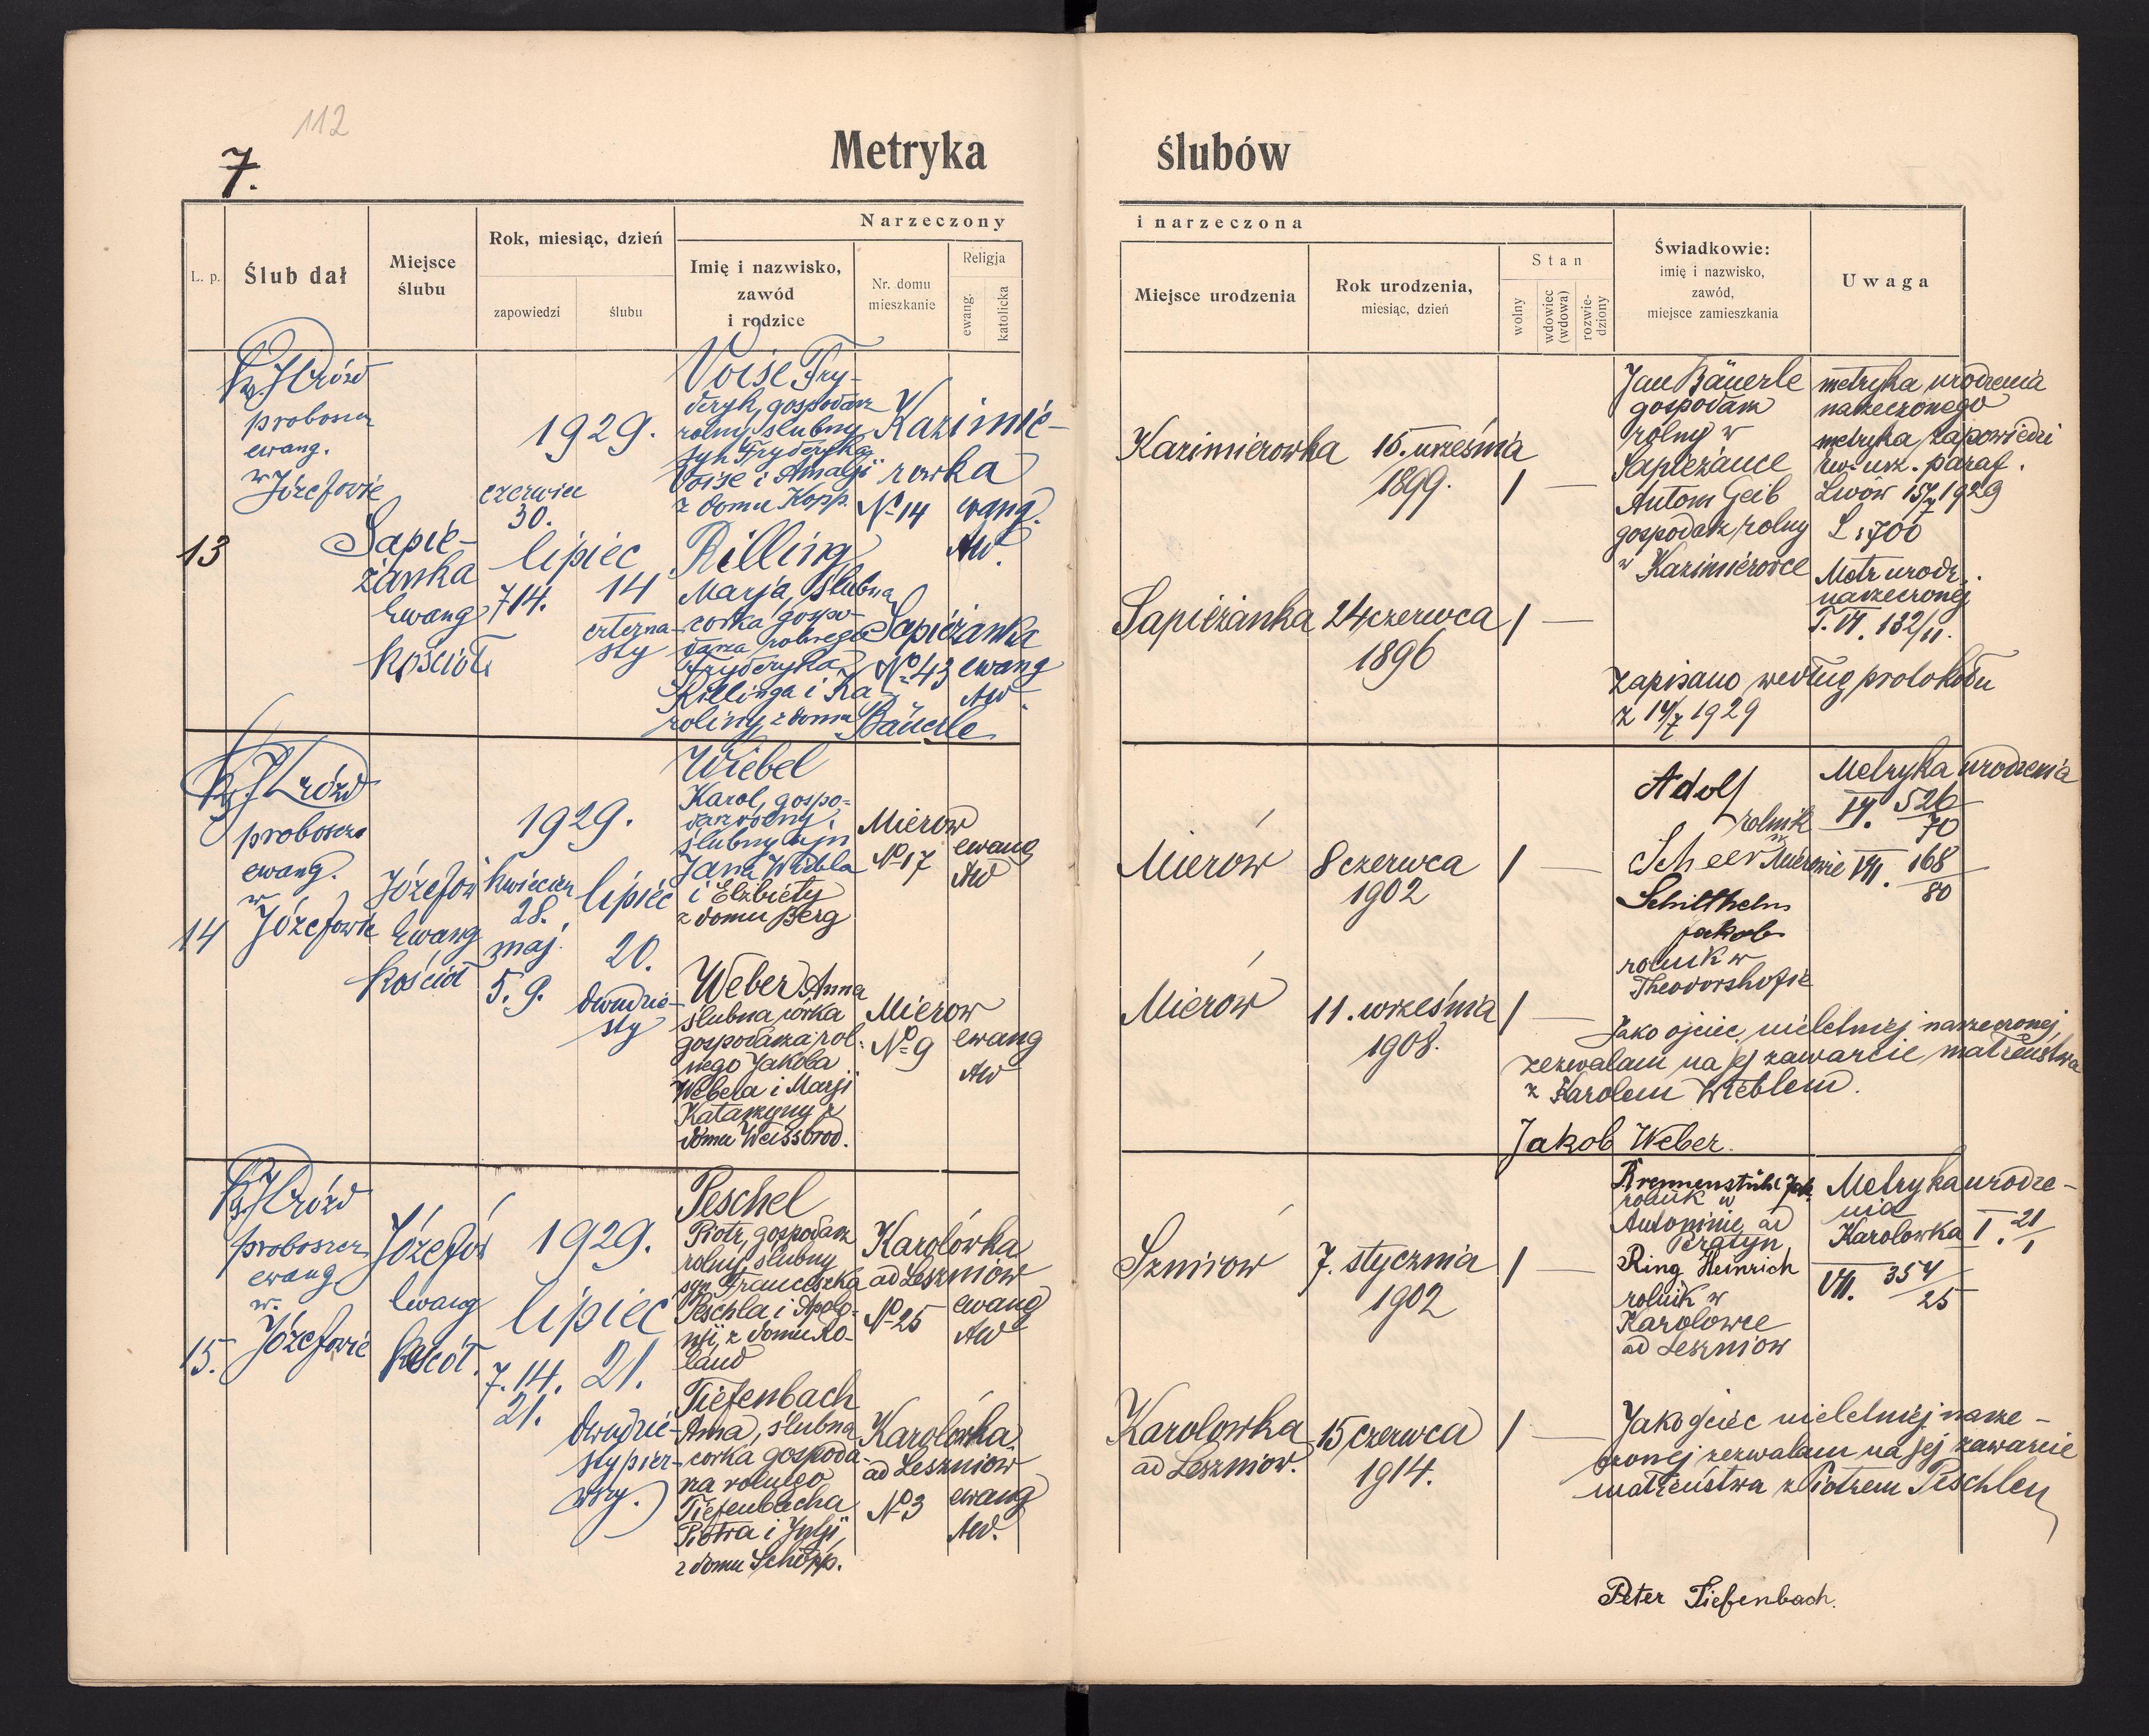 112
7.
Metryka ślubów
L. p.
Ślub dał
Miejsce
ślubu
Rok, miesiąc, dzień
zapowiedzi
ślubu
Narzeczony
Imię i nazwisko,
zawód
i rodzice
Nr. domu
mieszkanie
Religja
ewang.
katolicka
i narzeczona
Miejsce urodzenia
Rok urodzenia,
miesiąc, dzień
Stan
wolny
wdowiec
(wdowa)
rozwie-
dziony
Świadkowie:
imię i nazwisko,
zawód,
miejsce zamieszkania
Uwaga
13
proboszcz
ewang.
w
Józefowie
Sapie-
żanka
Ewang
kościół
1929.
czerwiec
30.
lipiec
7 14.
14
czterna-
sty
Voise Fry-
deryk, gospodarz
rolny, ślubny
syn Fryderyka
Voise i Amalji
z domu Kopp.
Kazimie-
rowka
No 14
ewang.
AW.
Rilling
Marja, ślubna
corka gospo-
darza rolnego
Fryderyka
Rillinga i Ka-
roliny z domu Bäuerle
Sapieżanka
No 43
ewang
AW.
Kazimierowka
15. września
1899.
Sapieżanka
24 czerwca
1896
Jan Bäuerle
gospodarz
rolny w
Sapieżance
Antoni Geib
gospodarz rolny
w Kazimierowce
metryka urodzenia
narzeczonego
metryka zapowiedzi
paraf.
Lwów 15/7 1929
L: 700
Metr urodz.
narzeczonej
T. VI. 132/11.
Zapisano według protokołu
z 14/7 1929
14
proboszcz
ewang.
w
Józefowie
Józefów
Ewang
kościół
1929.
kwiecień
28.
maj.
5. 9.
lipiec
20.
dwudzie-
sty
Wiebel
Karol, gospo-
darz rolny,
ślubny syn
Jana Wiebla
i Elżbiety
z domu Berg
Mierow
No 17
ewang
AW
Weber Anna
ślubna córka
gospodarza rol-
nego Jakóba
Webera i Marji
Katarzyny z
domu Weissbrod.
Mierow
No 9
ewang
AW
Mierów
8 czerwca
1902
Mierów
11. września
1908.
Adolf
rolnik
w
Scheer Mierowie
Schilthelm
Jakob
rolnik w
Theodorshofie
Metryka urodzenia
VI. 526/70
VII. 168/80
Jako ojciec nieletniej narzeczonej,
zezwalam na jej zawarcie małżeństwa
z Karolem Wieblem.
Jakob Weber.
15.
proboszcz
ewang
w.
Józefowie
Józefów
Ewang
kościół.
1929.
lipiec
7. 14.
21.
21.
dwudzie-
stypier-
wszy.
Peschel
Piotr, gospodarz
rolny, ślubny
syn Franciszka
Peschla i Apolo-
nji, z domu Ro-
land
Karolówka
ad Leszniow
No 25
ewang
AW
Tiefenbach
Anna, ślubna
corka gospoda-
rza rolnego
Tiefenbacha
Piotra i Julji,
z domu Schöpp.
Karolówka
ad Leszniow
No 3
ewang
AW.
Szmirow
7. stycznia
1902
Karolowka
ad Leszniow.
15 czerwca
1914.
Krennenstuhl Jak.
rolnik w
Antoninie ad
Peratyn
Ring Heinrich
rolnik w
Karolowce
ad Leszniow
Metryka urodze-
nia
Karolowka I. 21/1
VII. 354/25
Jako ojciec nieletniej narze-
czonej zezwalam na jej zawarcie
małżeństwa z Piotrem Peschlem
Peter Tiefenbach.